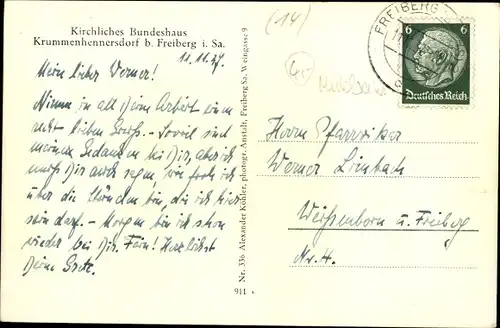 Kirchliches Bundeshaus
Krummenhennersdorf b. Freiberg i. Sa.
11.11.37.
Mein lieber Werner!
Nimm in all Deine Arbeit einen
recht lieben Gruß. - Soviel sind
meine Gedanken bei Dir, aber ich
muß Dir auch sagen wie froh ich
über die Stunden bin, die ich hier
sein darf. - Morgen bin ich schon
wieder bei Dir. Fein! Herzlichst
Deine Grete.
Nr. 336 Alexander Köhler, photogr. Anstalt, Freiberg Sa. Weingasse 9
911
(14)
FREIBERG
6 6
Deutsches Reich
Herrn Pfarrvikar
Werner Limbach
Weißenborn ü. Freiberg
Nr. 4.